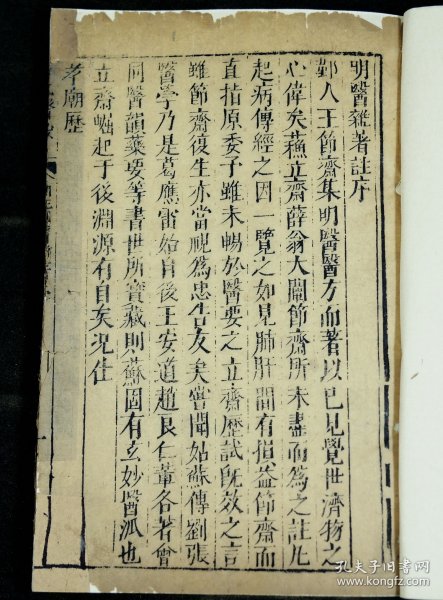 明醫雜著註序
鄞人王節齋集明醫醫方而著以己見覺世濟物之
心偉矣蘇立齋薛翁大闡節齋所未盡而為之註凡
起病傳經之因一覽之如見肺肝間有損益節齋而
直指原委予雖未暢於醫要之立齋歷試既效之言
雖節齋復生亦當視為忠告友矣嘗聞姑蘇傳劉張
醫學乃是葛應雷始自後王安道趙良仁輩各著會
同醫韻藥要等書世所寶藏則蘇固有玄妙醫派也
立齋崛起于後淵源有自矣況仕
孝廟歷
孔夫子旧书网
www.kongfz.com